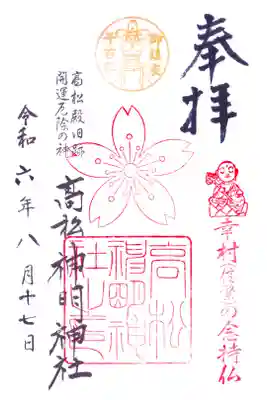 奉拝
幸村
の念持仏
高松殿旧跡
開運厄除の神
高松神明神社
令和六年八月十七日
高松
神明神
社之印